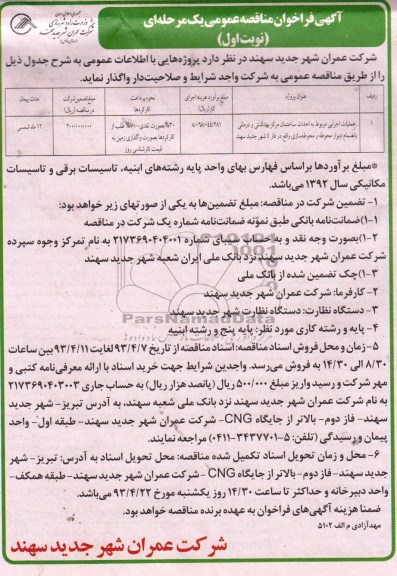 آگهی فراخوان مناقصه عمومی یک مرحله‌ای
(نوبت اول)
شرکت عمران شهر جدید سهند در نظر دارد پروژه‌هایی با اطلاعات عمومی به شرح جدول ذیل
را از طریق مناقصه عمومی به شرکت واجد شرایط و صلاحیت‌دار واگذار نماید.
ردیف
عنوان پروژه
مبلغ برآورد هزینه اجرای کار (ریال)
نحوه پرداخت کارکردها
مبلغ تضمین شرکت در مناقصه (ریال)
مدت پیمان
۱
عملیات اجرایی مربوط به احداث ساختمان مرکز بهداشتی و درمانی
بانضمام دیوار محوطه و محوطه‌سازی واقع در فاز ۴ شهر جدید سهند
کارکردها بصورت واگذاری زمین به
قیمت کارشناسی روز
۱۲ ماه شمسی
*مبلغ برآوردها براساس فهارس بهای واحد پایه رشته‌های ابنیه، تاسیسات برقی و تاسیسات
مکانیکی سال ۱۳۹۲ می‌باشد.
۱- تضمین شرکت در مناقصه: مبلغ تضمین‌ها به یکی از صورتهای زیر خواهد بود:
۱-۱) ضمانت‌نامه بانکی طبق نمونه ضمانت‌نامه شماره یک شرکت در مناقصه
۱-۲) بصورت وجه نقد و به حساب سیبای شماره ۲۱۷۳۶۹۰۴۰۴۰۰۱ به نام تمرکز وجوه سپرده
شرکت عمران شهر جدید سهند نزد بانک ملی ایران شعبه شهر جدید سهند
۱-۳) چک تضمین شده از بانک ملی
۲- کارفرما: شرکت عمران شهر جدید سهند
ParsNamadData
۳- دستگاه نظارت: دستگاه نظارت شهر جدید سهند
۴- پایه و رشته کاری مورد نظر: پایه پنج و رشته ابنیه
۵- زمان و محل فروش اسناد مناقصه: اسناد مناقصه از تاریخ ۹۳/۴/۷ لغایت ۹۳/۴/۱۱ بین ساعات
۸/۳۰ الی ۱۴/۳۰ به فروش می‌رسد. واجدین شرایط جهت خرید اسناد با ارائه معرفی‌نامه کتبی و
مهر شرکت و رسید واریز مبلغ ۵۰۰/۰۰۰ ریال (پانصد هزار ریال) به حساب جاری ۲۱۷۳۶۹۰۴۰۳۰۰۳
به نام شرکت عمران شهر جدید سهند نزد بانک ملی شعبه سهند، به آدرس تبریز- شهر جدید
سهند- فاز دوم- بالاتر از جایگاه CNG- شرکت عمران شهر جدید سهند- طبقه اول- واحد
پیمان و رسیدگی (تلفن: ۵-۳۴۳۷۷۰۱-۰۴۱۱) مراجعه نمایند.
۶- محل و زمان تحویل اسناد تکمیل شده مناقصه: محل تحویل اسناد به آدرس: تبریز- شهر
جدید سهند- فاز دوم- بالاتر از جایگاه CNG- شرکت عمران شهر جدید سهند- طبقه همکف-
واحد دبیرخانه و حداکثر تا ساعت ۱۴/۳۰ روز یکشنبه مورخ ۹۳/۴/۲۲ می‌باشد.
ضمنا هزینه آگهی‌های فراخوان به عهده برنده مناقصه خواهد بود.
مهدآزادی م الف ۵۱۰۲
شرکت عمران شهر جدید سهند